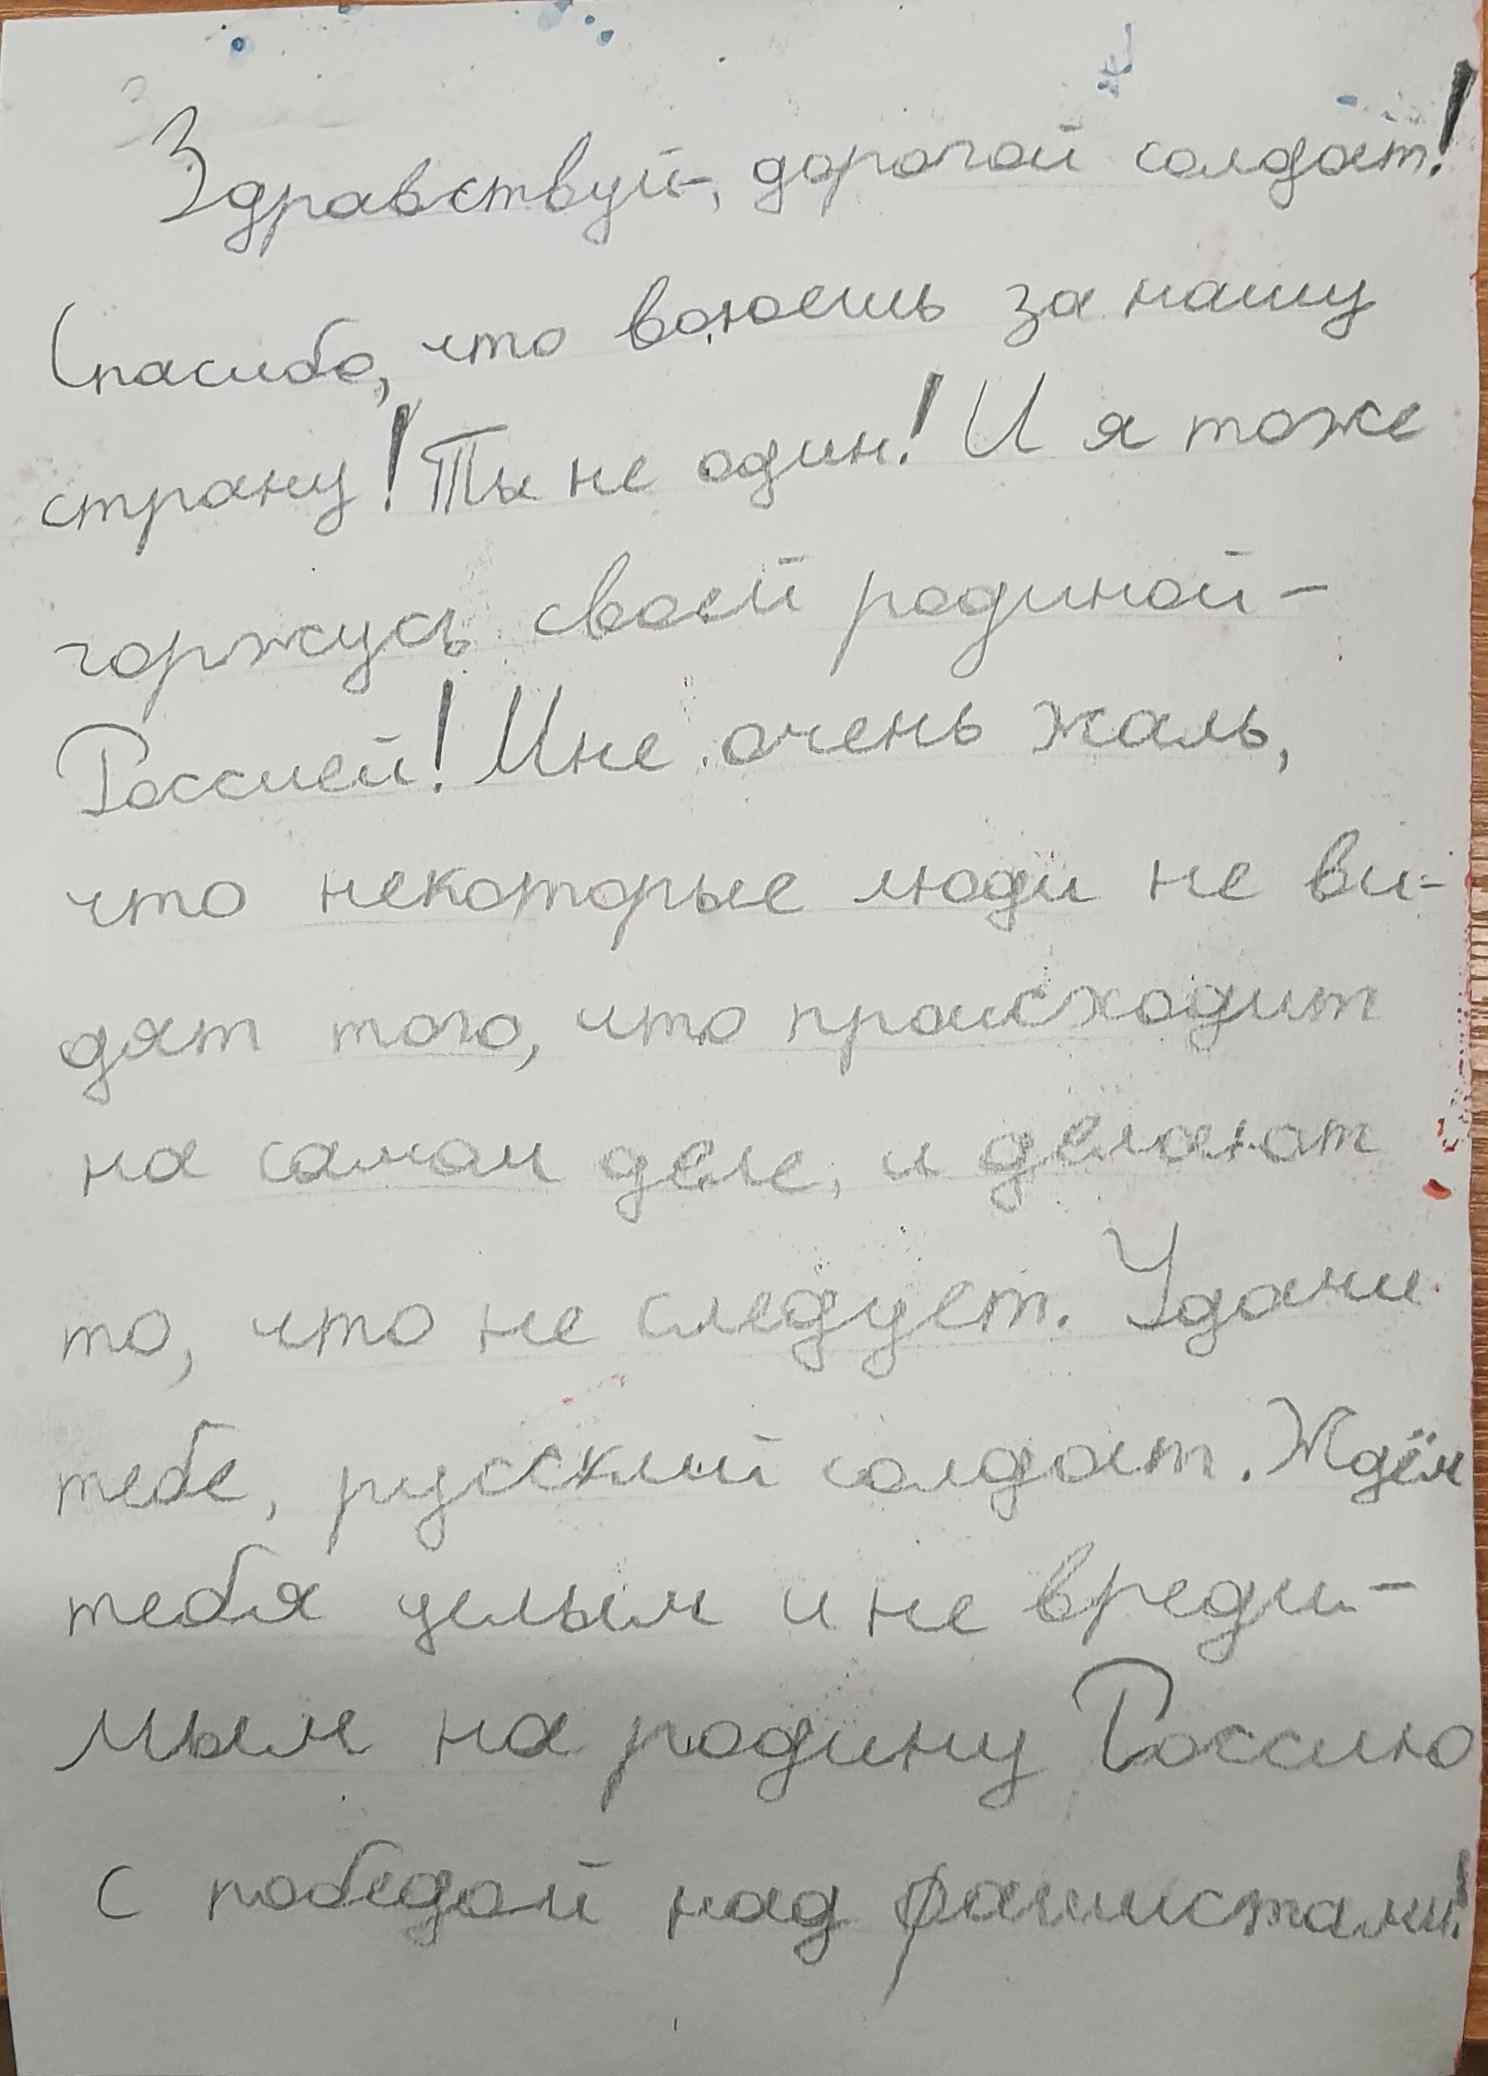 Здравствуй, дорогой солдат!
Спасибо, что воюешь за нашу
страну! Ты не один! И я тоже
горжусь своей родиной-
Россией! Мне очень жаль,
что некоторые люди не ви-
дят того, что происходит
на самом деле, и делают
то, что не следует. Удачи
тебе, русский солдат. Ждём
тебя целым и не вреди-
мым на родину Россию
с победой над фашистами!